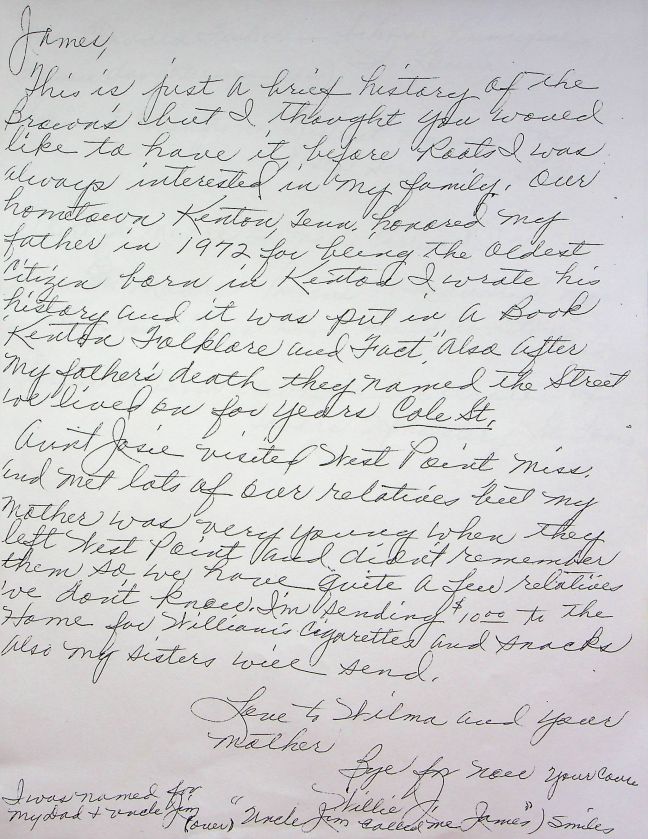 James,
This is just a brief history of the
Brown's but I thought you would
like to have it, before Roots I was
always interested in my family. Our
hometown Kenton, Tenn. honored my
father in 1972 for being the oldest
Citizen born in Kenton I wrote his
history and it was put in a Book
"Kenton Folklore and Fact," Also after
my father's death they named the Street
we lived on for years Cole St.
Aunt Josie visited West Point Miss.
and met lots of our relatives but my
Mother was very young when they
left West Point and didn't remember
them so we have quite a few relatives
we don't know. I'm sending $10.00 to the
Home for William's Cigarettes and snacks
also my sisters will send.
Love to Wilma and your
mother
Bye for now your Cousin
Willie J.
I was named for
my Dad & Uncle Jim
(over) "Uncle Jim called me James") Smiles